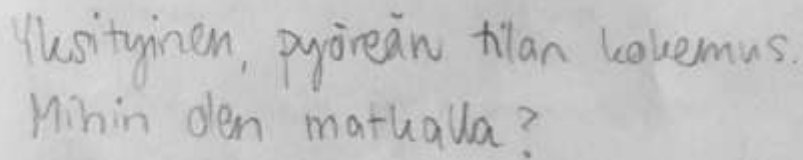 Yksityinen, pyöreän tilan kokemus.
Mihin olen matkalla?